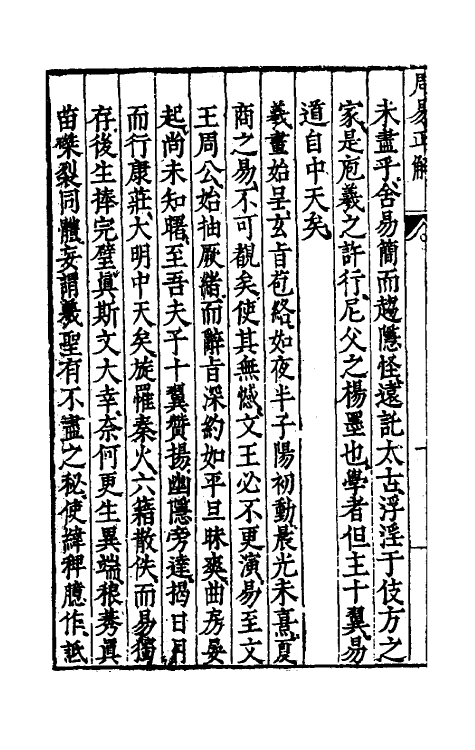 周易正解
未盡乎舍易簡而趨隱怪遠託太古浮淫于伎方之
家是庖羲之許行尼父之楊墨也學者但主十翼易
道自中天矣
羲畫始呈玄旨苞絡如夜半子陽初動晨光未熹夏
商之易不可覩矣使其無憾文王必不更演易至文
王周公始抽厥緒而辭旨深約如平旦昧爽曲房晏
起尚未知曙至吾夫子十翼贊揚幽隱旁達揭日月
而行康莊大明中天矣旋罹秦火六籍散佚而易獨
存後生捧完璧真斯文大幸奈何更生異端稂莠真
苗磔裂同體妄謂羲聖有不盡之秘使緯稗臆作詆